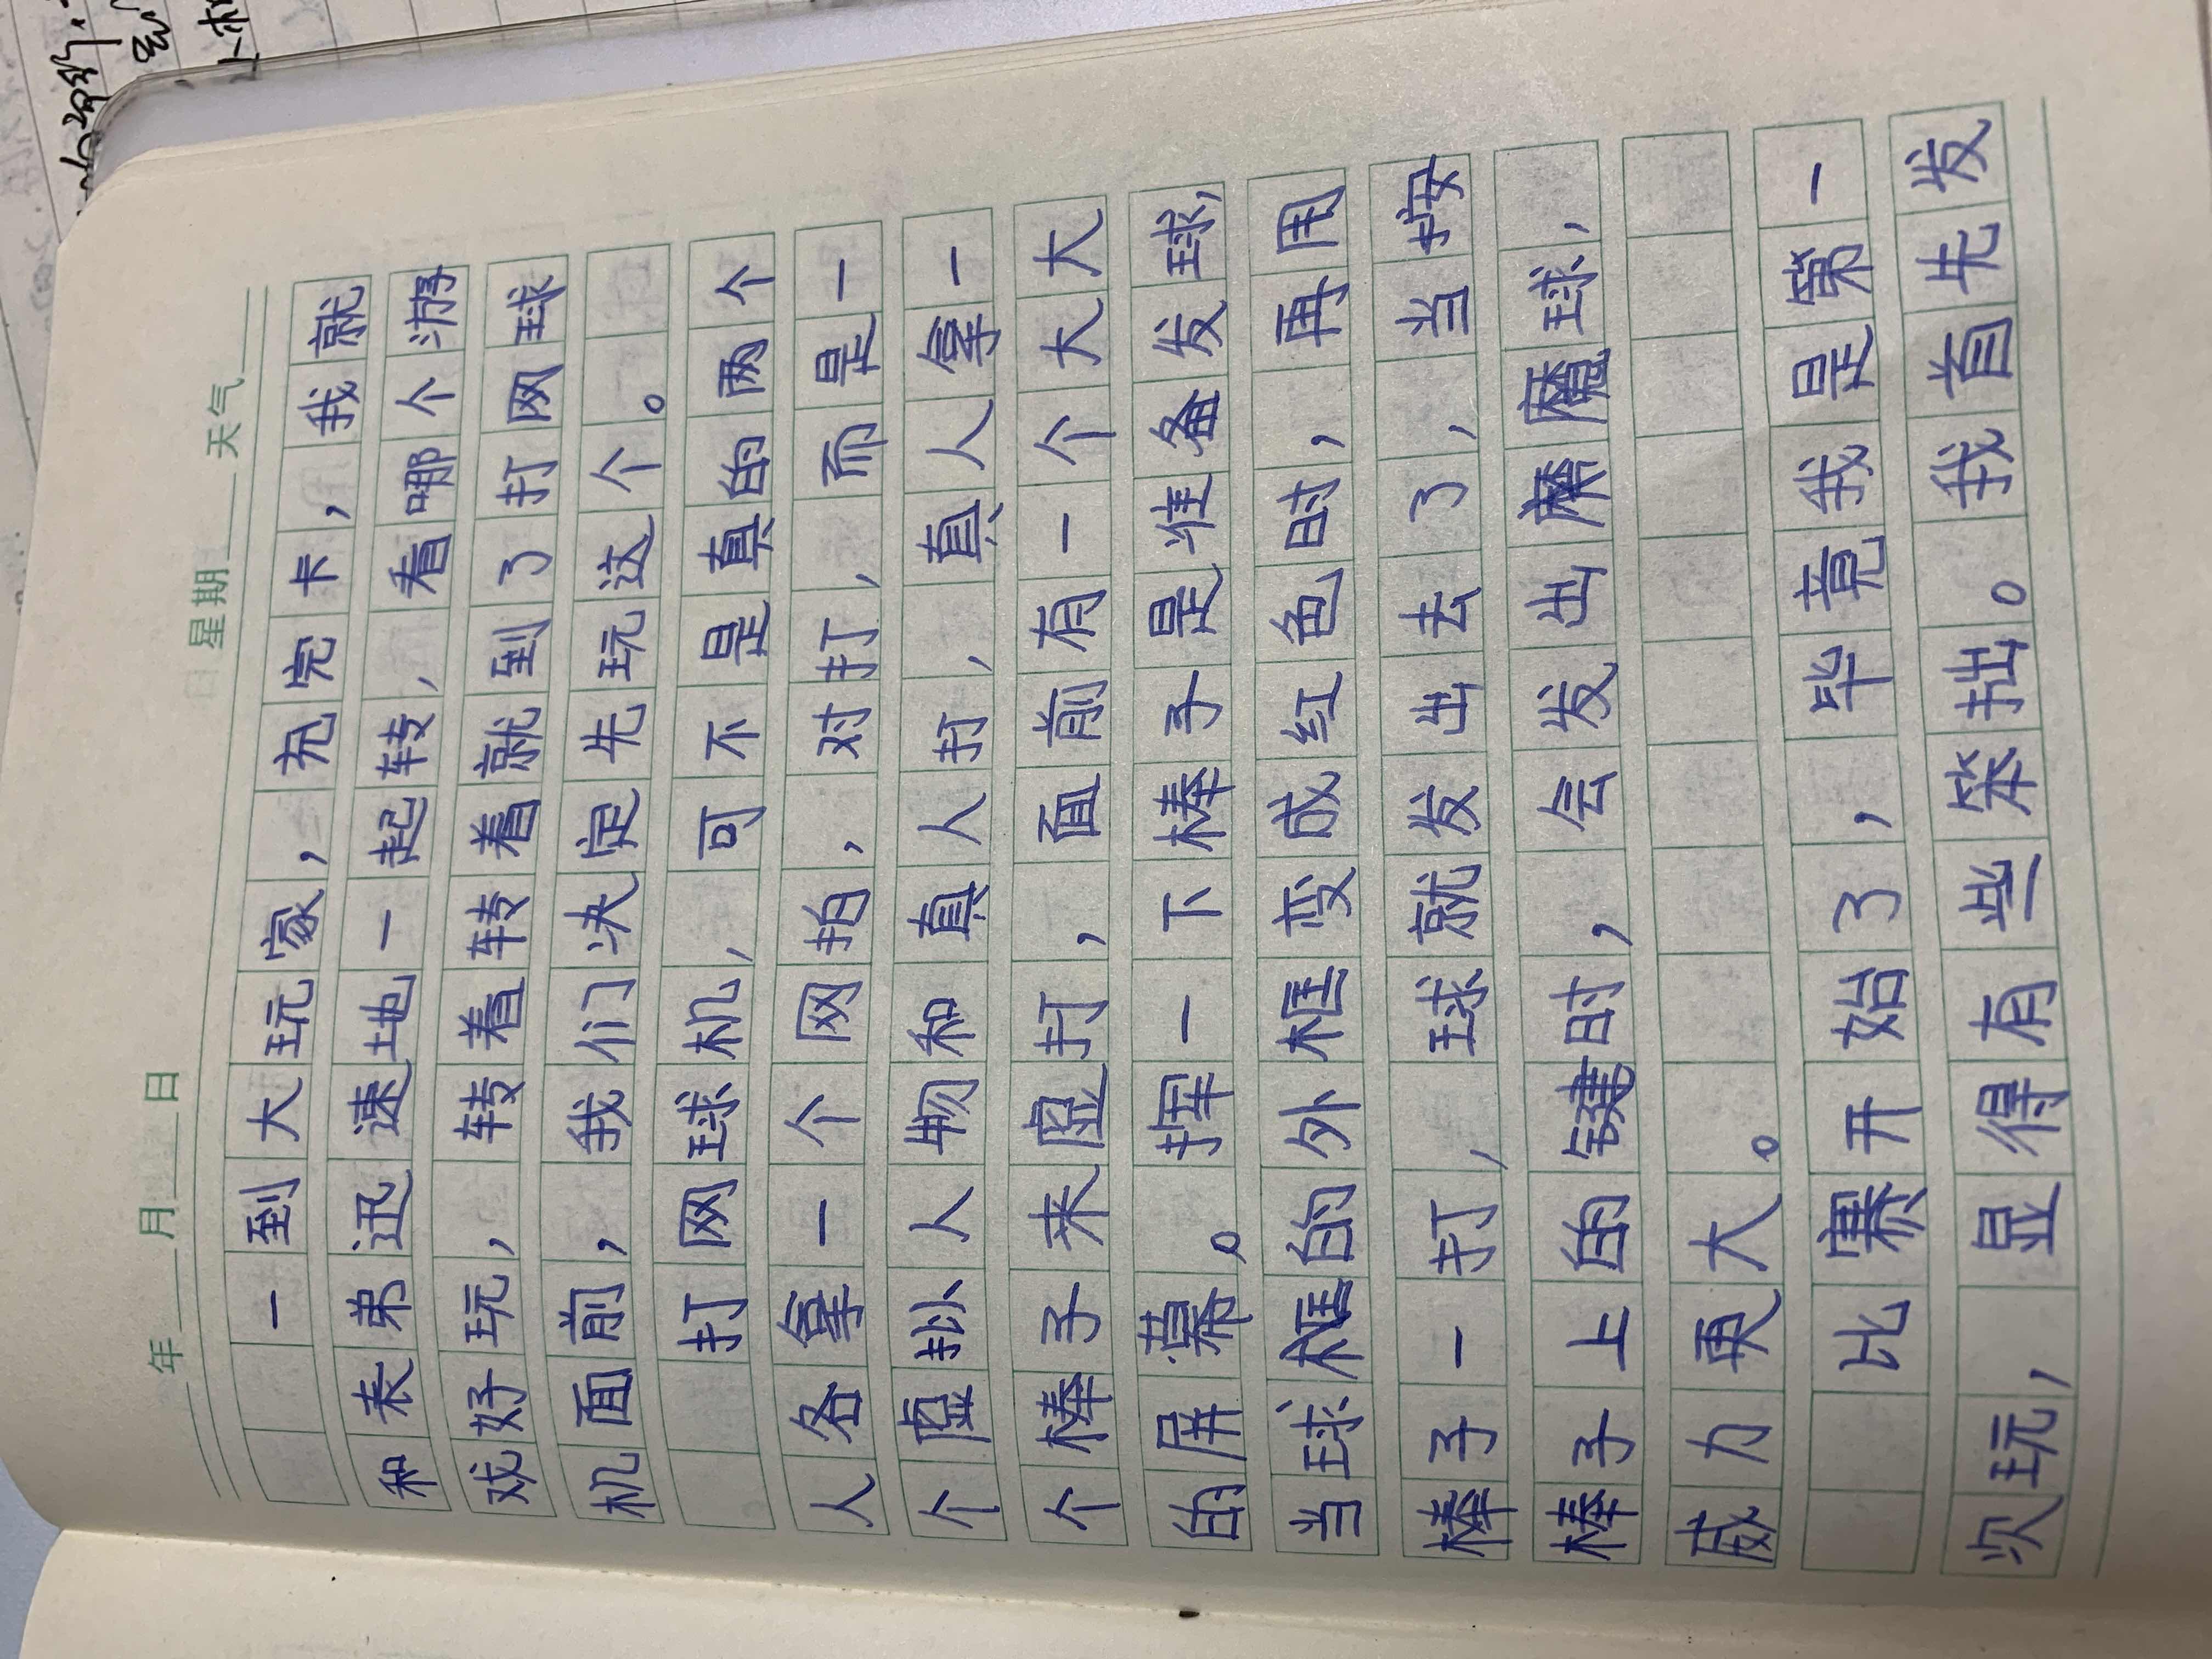 年 月 日 星期 天气
一到大玩家，充完卡，我就
和表弟迅速地一起转，看哪个游
戏好玩，转着转着就到了打网球
机面前，我们决定先玩这个。
打网球机，可不是真的两个
人各拿一个网拍，对打，而是一
个虚拟人物和真人打，真人拿一
个棒子来虚打，面前有一个大大
的屏幕。挥一下棒子是准备发球，
当球框的外框变成红色时，再用
棒子一打，球就发出去了，当按
棒子上的键时，会发出魔球，
威力更大。
比赛开始了，毕竟我是第一
次玩，显得有些笨拙。我首先发